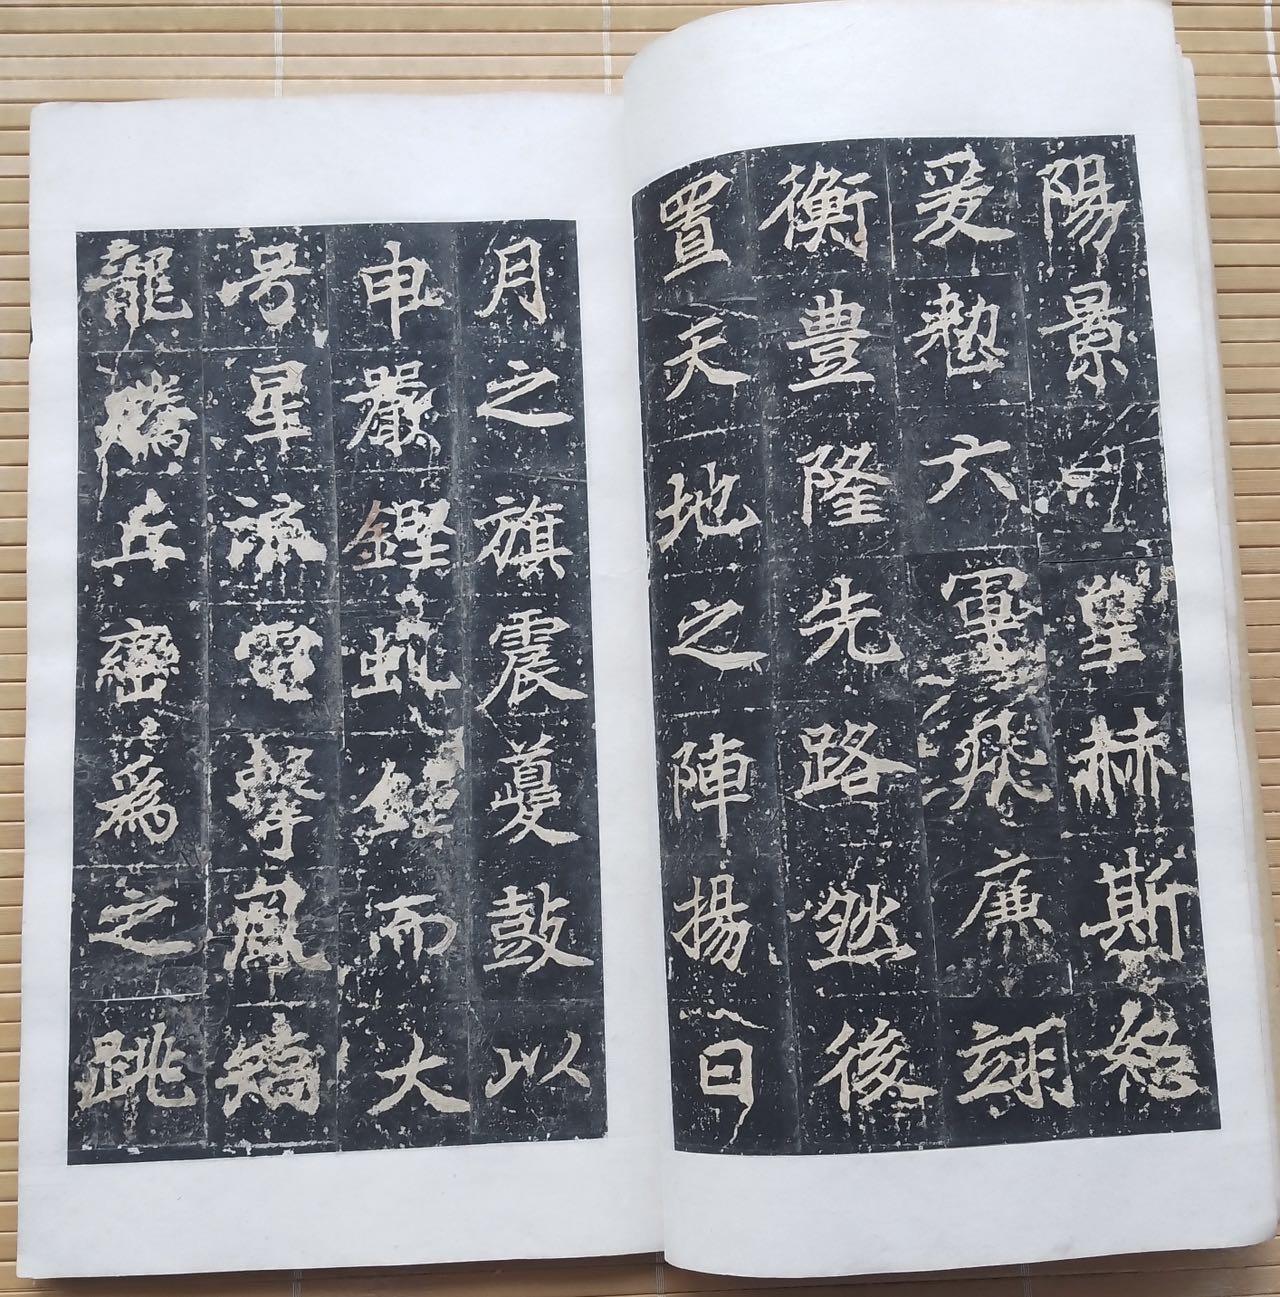 陽景皇赫斯怒
爰整六軍飛廉翊
衡豊隆先路然後
置天地之陣揚日
月之旗震夔鼓以
申嚴鏗虬鍾而大
号星流電擊風矯
龍騰丘巒為之跳